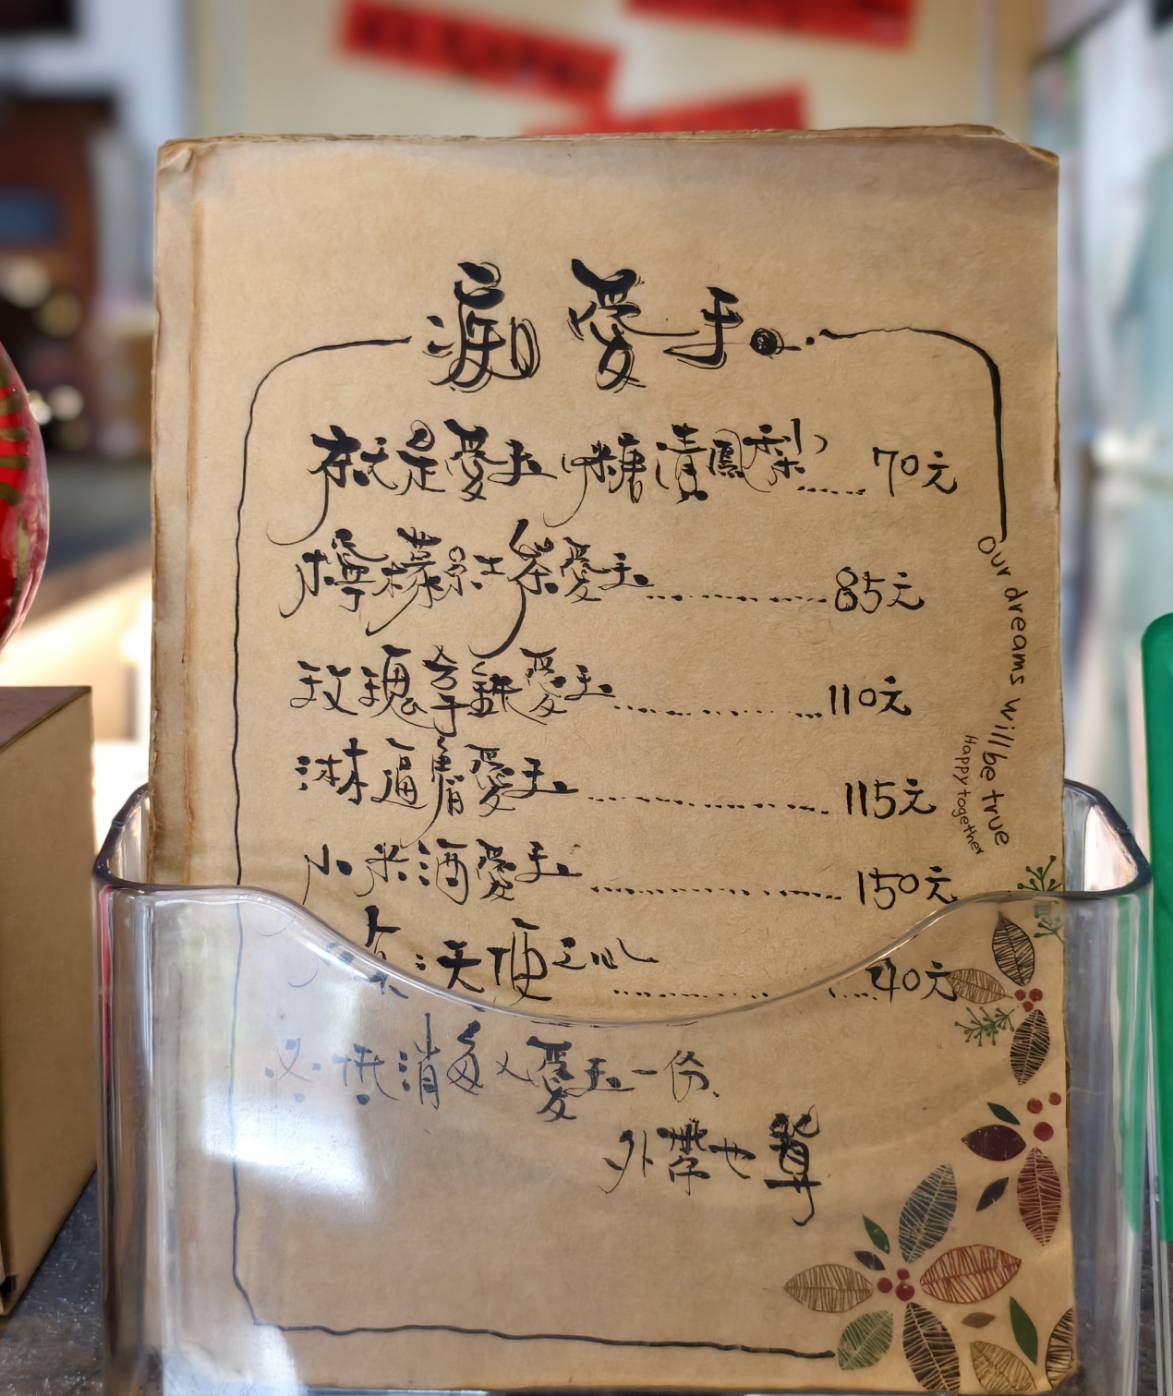 痴愛玉
就是愛玉 糖漬鳳梨 70元
檸檬紅茶愛玉 85元
玫瑰拿鐵愛玉 110元
淋逼膏愛玉 115元
小米酒愛玉 150元
天使之心 40元
低消 愛玉一份
外帶也算
Our dreams will be true
Happy together